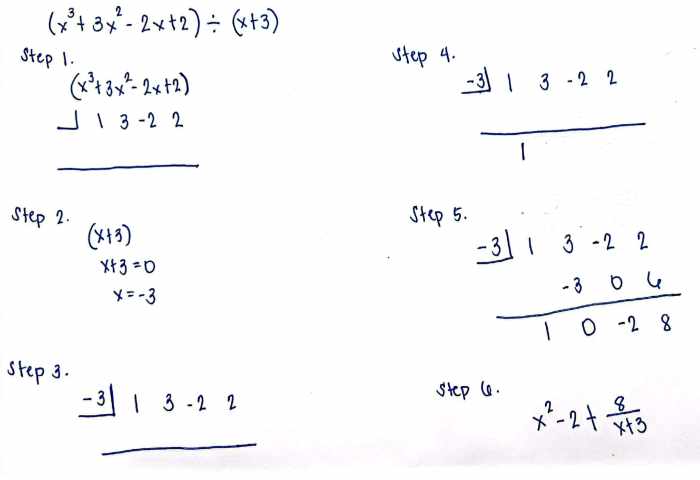 (x³+3x²-2x+2) ÷ (x+3)
Step 1.
(x³+3x²-2x+2)
1 3 -2 2
Step 2.
(x+3)
x+3=0
x=-3
Step 3.
-3 1 3 -2 2
Step 4.
-3 1 3 -2 2
1
Step 5.
-3 1 3 -2 2
-3 0 6
1 0 -2 8
Step 6.
x²-2+ 8/x+3